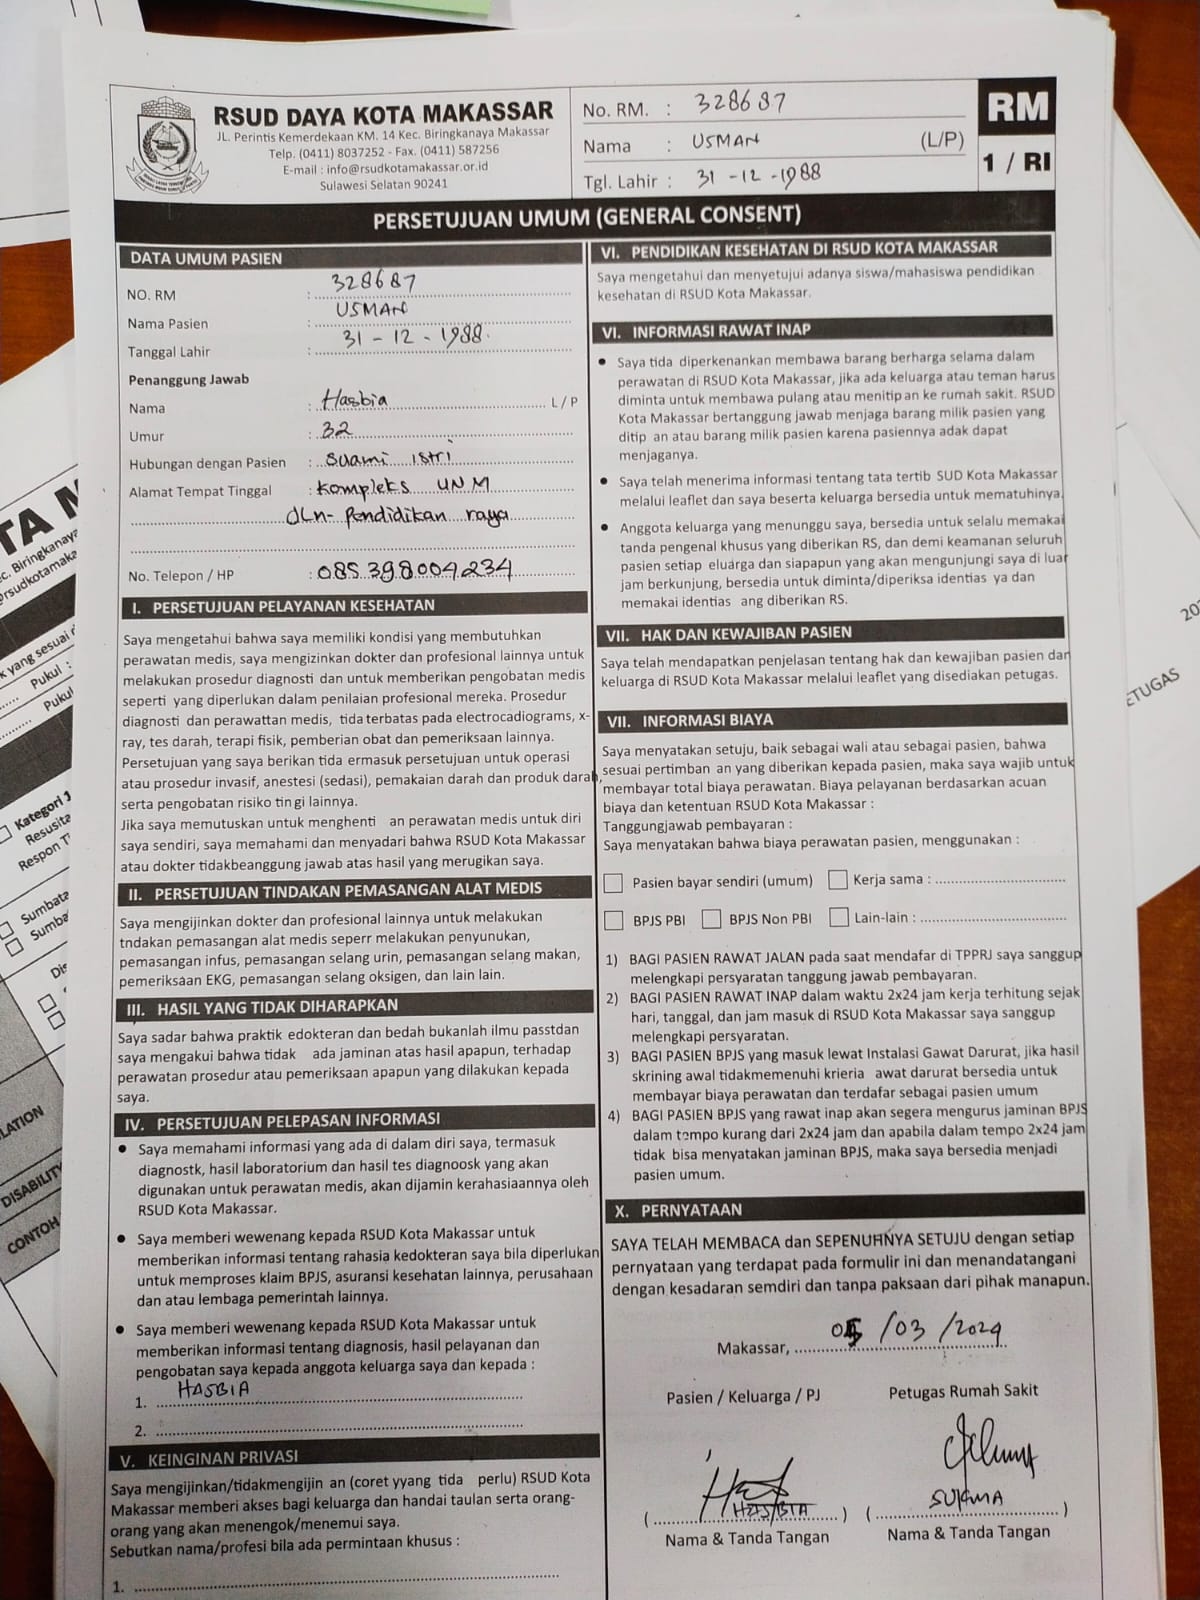 RSUD DAYA KOTA MAKASSAR
JL. Perintis Kemerdekaan KM. 14 Kec. Biringkanaya Makassar
Telp. (0411) 8037252 - Fax. (0411) 587256
E-mail : info@rsudkotamakassar.or.id
Sulawesi Selatan 90241
No. RM. : 328687
Nama : USMAN (L/P)
Tgl. Lahir : 31-12-1988
RM
1 / RI
PERSETUJUAN UMUM (GENERAL CONSENT)
DATA UMUM PASIEN
NO. RM : 328687
Nama Pasien : USMAN
Tanggal Lahir : 31 - 12 - 1988.
Penanggung Jawab
Nama : Hasbia L / P
Umur : 32
Hubungan dengan Pasien : Suami istri
Alamat Tempat Tinggal : Kompleks UNM
JLn- Pendidikan raya
No. Telepon / HP : 085398004234
I. PERSETUJUAN PELAYANAN KESEHATAN
Saya mengetahui bahwa saya memiliki kondisi yang membutuhkan
perawatan medis, saya mengizinkan dokter dan profesional lainnya untuk
melakukan prosedur diagnosti dan untuk memberikan pengobatan medis
seperti yang diperlukan dalam penilaian profesional mereka. Prosedur
diagnosti dan perawattan medis, tida terbatas pada electrocadiograms, x-
ray, tes darah, terapi fisik, pemberian obat dan pemeriksaan lainnya.
Persetujuan yang saya berikan tida ermasuk persetujuan untuk operasi
atau prosedur invasif, anestesi (sedasi), pemakaian darah dan produk darah,
serta pengobatan risiko tin gi lainnya.
Jika saya memutuskan untuk menghenti an perawatan medis untuk diri
saya sendiri, saya memahami dan menyadari bahwa RSUD Kota Makassar
atau dokter tidakbeanggung jawab atas hasil yang merugikan saya.
II. PERSETUJUAN TINDAKAN PEMASANGAN ALAT MEDIS
Saya mengijinkan dokter dan profesional lainnya untuk melakukan
tndakan pemasangan alat medis seperr melakukan penyunukan,
pemasangan infus, pemasangan selang urin, pemasangan selang makan,
pemeriksaan EKG, pemasangan selang oksigen, dan lain lain.
III. HASIL YANG TIDAK DIHARAPKAN
Saya sadar bahwa praktik edokteran dan bedah bukanlah ilmu passtdan
saya mengakui bahwa tidak ada jaminan atas hasil apapun, terhadap
perawatan prosedur atau pemeriksaan apapun yang dilakukan kepada
saya.
IV. PERSETUJUAN PELEPASAN INFORMASI
• Saya memahami informasi yang ada di dalam diri saya, termasuk
diagnostk, hasil laboratorium dan hasil tes diagnoosk yang akan
digunakan untuk perawatan medis, akan dijamin kerahasiaannya oleh
RSUD Kota Makassar.
• Saya memberi wewenang kepada RSUD Kota Makassar untuk
memberikan informasi tentang rahasia kedokteran saya bila diperlukan
untuk memproses klaim BPJS, asuransi kesehatan lainnya, perusahaan
dan atau lembaga pemerintah lainnya.
• Saya memberi wewenang kepada RSUD Kota Makassar untuk
memberikan informasi tentang diagnosis, hasil pelayanan dan
pengobatan saya kepada anggota keluarga saya dan kepada :
1. HASBIA
2.
V. KEINGINAN PRIVASI
Saya mengijinkan/tidakmengijin an (coret yyang tida perlu) RSUD Kota
Makassar memberi akses bagi keluarga dan handai taulan serta orang-
orang yang akan menengok/menemui saya.
Sebutkan nama/profesi bila ada permintaan khusus :
1.
VI. PENDIDIKAN KESEHATAN DI RSUD KOTA MAKASSAR
Saya mengetahui dan menyetujui adanya siswa/mahasiswa pendidikan
kesehatan di RSUD Kota Makassar.
VI. INFORMASI RAWAT INAP
• Saya tida diperkenankan membawa barang berharga selama dalam
perawatan di RSUD Kota Makassar, jika ada keluarga atau teman harus
diminta untuk membawa pulang atau menitip an ke rumah sakit. RSUD
Kota Makassar bertanggung jawab menjaga barang milik pasien yang
ditip an atau barang milik pasien karena pasiennya adak dapat
menjaganya.
• Saya telah menerima informasi tentang tata tertib SUD Kota Makassar
melalui leaflet dan saya beserta keluarga bersedia untuk mematuhinya.
• Anggota keluarga yang menunggu saya, bersedia untuk selalu memakai
tanda pengenal khusus yang diberikan RS, dan demi keamanan seluruh
pasien setiap eluárga dan siapapun yang akan mengunjungi saya di luar
jam berkunjung, bersedia untuk diminta/diperiksa identias ya dan
memakai identias ang diberikan RS.
VII. HAK DAN KEWAJIBAN PASIEN
Saya telah mendapatkan penjelasan tentang hak dan kewajiban pasien dan
keluarga di RSUD Kota Makassar melalui leaflet yang disediakan petugas.
VII. INFORMASI BIAYA
Saya menyatakan setuju, baik sebagai wali atau sebagai pasien, bahwa
sesuai pertimban an yang diberikan kepada pasien, maka saya wajib untuk
membayar total biaya perawatan. Biaya pelayanan berdasarkan acuan
biaya dan ketentuan RSUD Kota Makassar :
Tanggungjawab pembayaran :
Saya menyatakan bahwa biaya perawatan pasien, menggunakan :
Pasien bayar sendiri (umum) Kerja sama :
BPJS PBI BPJS Non PBI Lain-lain :
1) BAGI PASIEN RAWAT JALAN pada saat mendafar di TPPRJ saya sanggup
melengkapi persyaratan tanggung jawab pembayaran.
2) BAGI PASIEN RAWAT INAP dalam waktu 2x24 jam kerja terhitung sejak
hari, tanggal, dan jam masuk di RSUD Kota Makassar saya sanggup
melengkapi persyaratan.
3) BAGI PASIEN BPJS yang masuk lewat Instalasi Gawat Darurat, jika hasil
skrining awal tidakmemenuhi krieria awat darurat bersedia untuk
membayar biaya perawatan dan terdafar sebagai pasien umum
4) BAGI PASIEN BPJS yang rawat inap akan segera mengurus jaminan BPJS
dalam tempo kurang dari 2x24 jam dan apabila dalam tempo 2x24 jam
tidak bisa menyatakan jaminan BPJS, maka saya bersedia menjadi
pasien umum.
X. PERNYATAAN
SAYA TELAH MEMBACA dan SEPENUHNYA SETUJU dengan setiap
pernyataan yang terdapat pada formulir ini dan menandatangani
dengan kesadaran semdiri dan tanpa paksaan dari pihak manapun.
Makassar, 05/03/2024
Pasien / Keluarga / PJ Petugas Rumah Sakit
(HASBIA) (SUKMA)
Nama & Tanda Tangan Nama & Tanda Tangan
TA M
c. Biringkanaya
@rsudkotamaka
k yang sesuai
Pukul :
Pukul
Kategori 1
Resusita
Respon T
Sumbata
Sumba
Dis
LATION
DISABILITY
CONTOH
202
ETUGAS